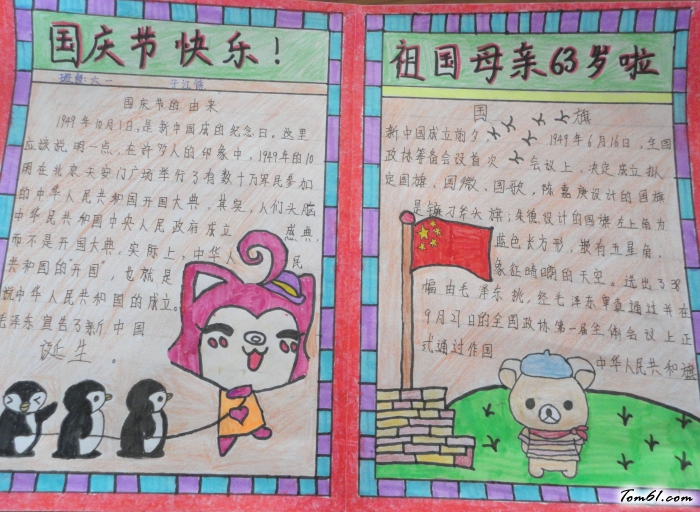 国庆节快乐！
班级:六一
国庆节的由来
1949年10月1日,是新中国成的纪念日。这里
应该说明一点,在许多人的印象中,1949年的10
明在北京天安门广场举行了有数十万军民参加
的中华人民共和国开国大典。其实,人们头脑
中华民共和国中央人民政府成立 盛典,
而不是开国大典。实际上,中华人 民
共和国的开国”,也就是
说中华人民共和国的成立。
毛泽东宣告了新中国
诞生。
祖国母亲63岁啦
国 旗
新中国成立前夕, 1949年6月16日,全国
政协筹备会议首次 会议上,决定成立拟
定国旗、国徽、国歌,陈嘉庚设计的国旗
是镰刀斧头旗;朱德设计的国旗左上角为
蓝色长方形,嵌有五星角,
象征晴朗的天空。选出了38
幅由毛泽东挑,经毛泽东审查通过并在
9月27日的全国政协第一届全体会议上正
式通过作国 中华人民共和旗
Tom61.com